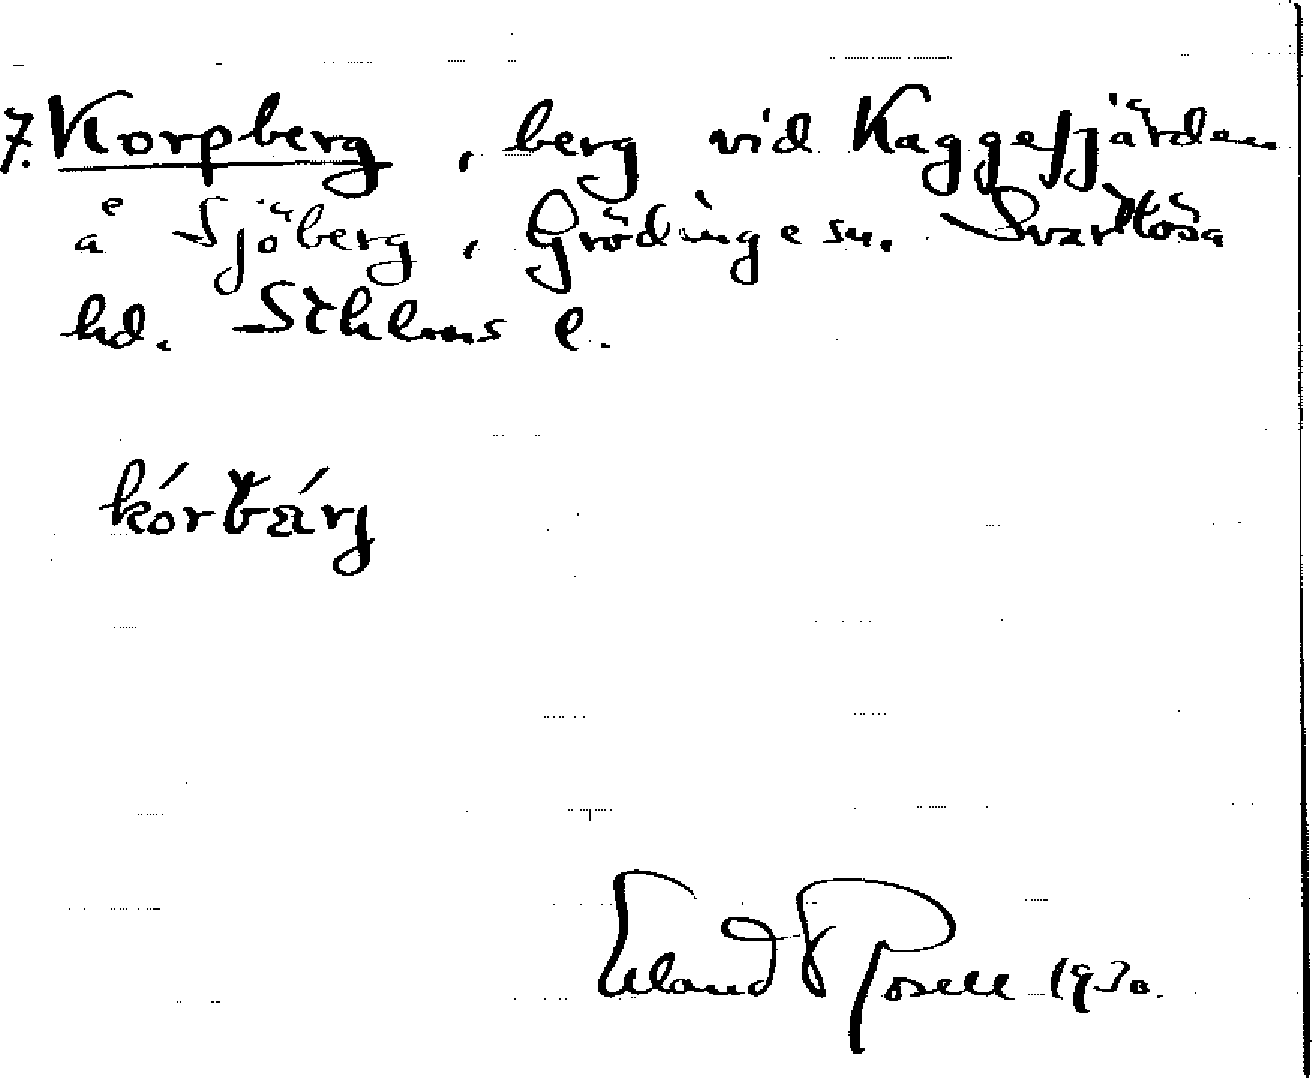 7. Korpberg, berg vid Kaggefjärden
å Sjöberg, Grödinge sn. Svartlösa
hd. Sthlms l.
kórbærj
Erland Rosell 1930.